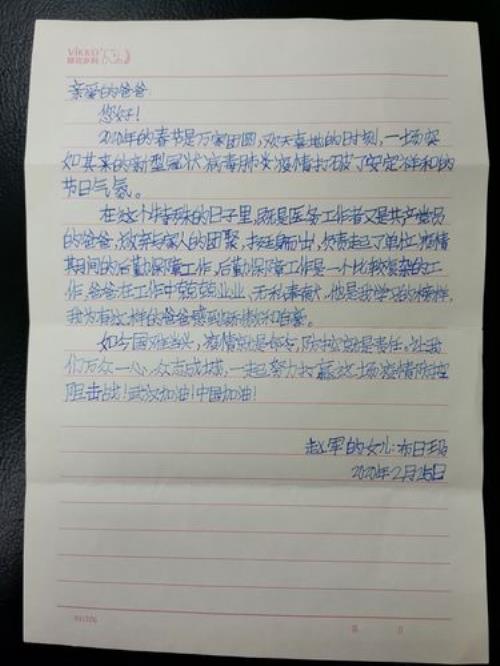 VIKKO
亲爱的爸爸:
您好!
2020年的春节是万家团圆,欢天喜地的日时刻,一场突
如其来的新型冠状病毒肺炎疫情打破了安定祥和的
节日气氛。
在这个特殊的日子里,既是医务工作者又是共产党员
的爸爸,放弃与家人的团聚,挺身而出,负责起了单位疫情
期间的后勤保障工作,后勤保障工作是一个比较繁杂的工
作,爸爸在工作中兢兢业业,无私奉献,他是我学习的榜样,
我为有这样的爸爸感到骄傲和自豪。
如今国难当头,疫情就是命令,防控就是责任,让我
们万众一心,众志成城,一起努力打赢这场疫情防控
阻击战!武汉加油!中国加油!
赵军的女儿:布日
2020年2月25日